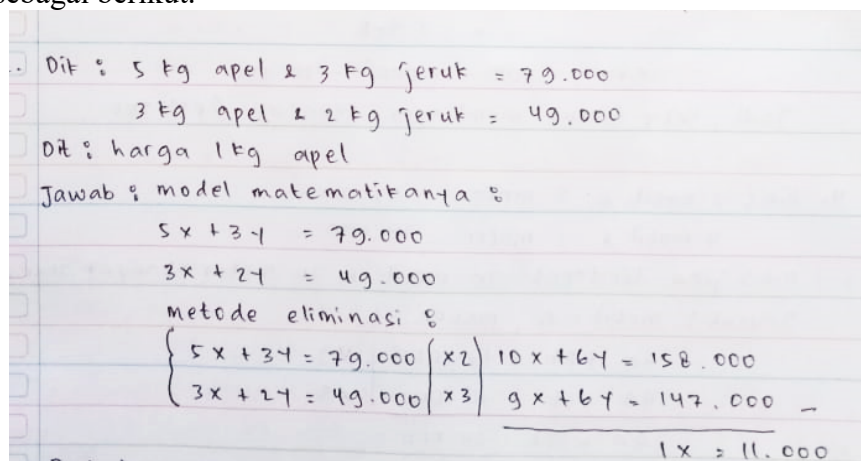 sebagai berikut:
Dik : 5 kg apel & 3 kg jeruk = 79.000
3 kg apel & 2 kg jeruk = 49.000
Dit : harga 1 kg apel
Jawab : model matematikanya :
5x + 3y = 79.000
3x + 2y = 49.000
metode eliminasi :
5x + 3y = 79.000 | x2 | 10x + 6y = 158.000
3x + 2y = 49.000 | x3 | 9x + 6y = 147.000 -
1x = 11.000